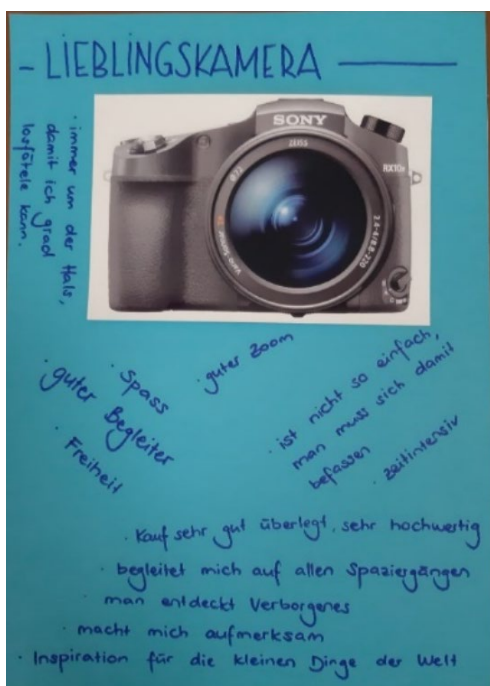 - LIEBLINGSKAMERA
· immer um der Hals,
damit ich grad
losfötele kann.
SONY
ZEISS
RX10
2.4-4/8.8-220
· guter Zoom
· Spass
· guter Begleiter
· Freiheit
· ist nicht so einfach,
man muss sich damit
befassen
· zeitintensiv
· Kauf sehr gut überlegt, sehr hochwertig
· begleitet mich auf allen Spaziergängen
· man entdeckt Verborgenes
· macht mich aufmerksam
· Inspiration für die kleinen Dinge der Welt